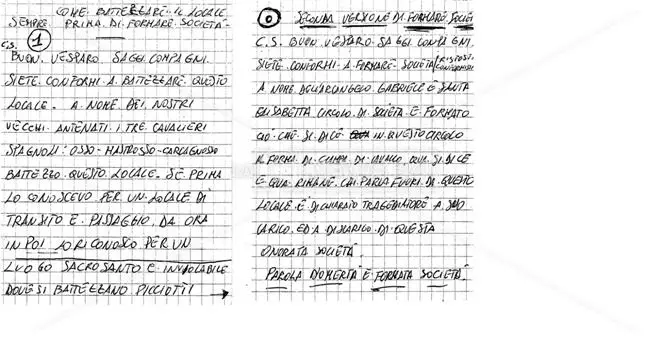 COME BATTEZZARE IL LOCALE
SEMPRE PRIMA DI FORMARE SOCIETÀ
C.S. 1
BUON VESPARO SAGGI COMPAGNI
SIETE CONFORMI A BATTEZZARE QUESTO
LOCALE. A NOME DEI NOSTRI
VECCHI ANTENATI I TRE CAVALIERI
SPAGNOLI: OSSO-MASTROSSO-CARCAGNOSSO
BATTEZZO QUESTO LOCALE. SE PRIMA
LO CONOSCEVO PER UN LOCALE DI
TRANSITO E PASSAGGIO, DA ORA
IN POI IO RICONOSCO PER UN
LUOGO SACROSANTO E INVIOLABILE
DOVE SI BATTEZZANO PICCIOTTI
O SECONDA VERSIONE DI FORMARE SOCIETÀ
C.S. BUON VESPARO SAGGI COMPAGNI
SIETE CONFORMI A FORMARE SOCIETÀ
A NOME DELL'ARCANGELO GABRIELE E SANTA
ELISABETTA CIRCOLO DI SOCIETÀ È FORMATO
CIÒ CHE SI DICE IN QUESTO CIRCOLO
A FORMA DI CAVALLO QUA SI DICE
E QUA RIMANE, CHI PARLA FUORI DI QUESTO
LOCALE È DICHIARATO TRAGEDIATORE A SUO
CARICO ED A DISCARICO DI QUESTA
ONORATA SOCIETÀ.
PAROLA D'OMERTÀ È FORMATA SOCIETÀ